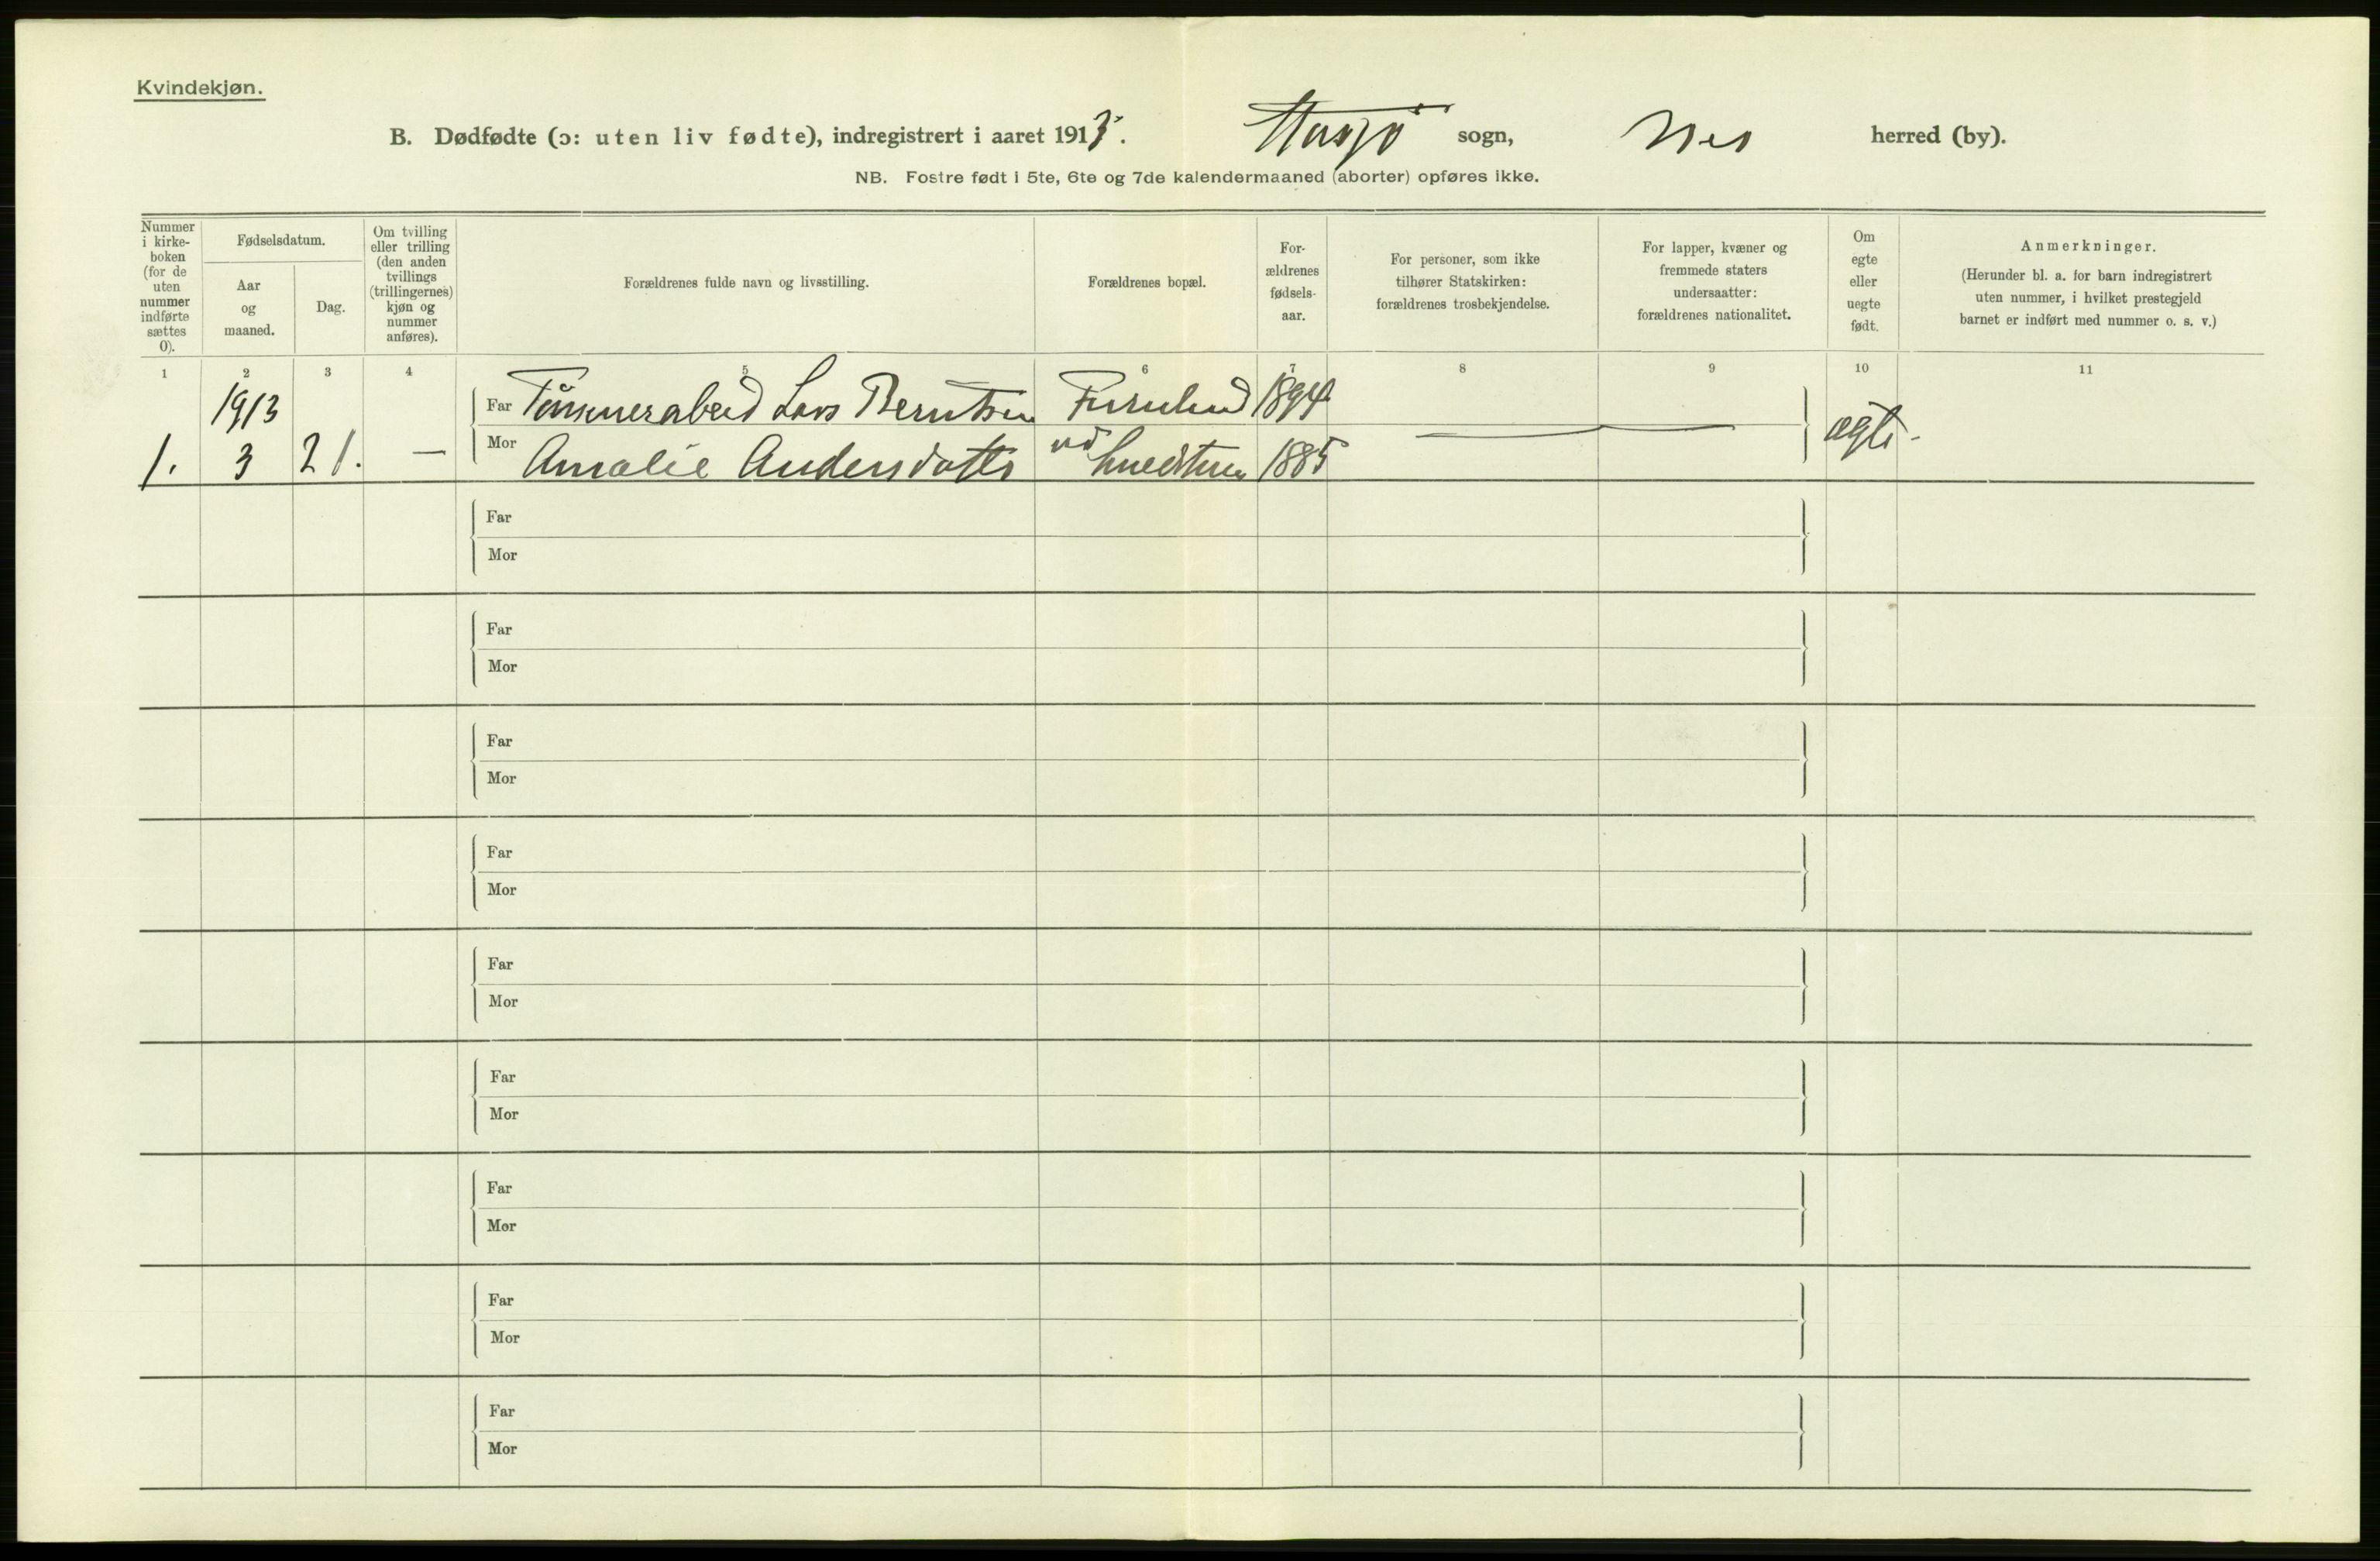 Kvindekjøn.
B. Dødfødte (ɔ: uten liv fødte), indregistrert i aaret 1913. sogn, Nes herred (by).
NB. Fostre født i 5te, 6te og 7de kalendermaaned (aborter) opføres ikke.
Nummer
i kirke-
boken
(for de
uten
nummer
indførte
sættes
0).
Fødselsdatum.
Aar
og
maaned.
Dag.
Om tvilling
eller trilling
(den anden
tvillings
(trillingernes)
kjøn og
nummer
anføres).
Forældrenes fulde navn og livsstilling.
Forældrenes bopæl.
For-
ældrenes
fødsels-
aar.
For personer, som ikke
tilhører Statskirken:
forældrenes trosbekjendelse.
For lapper, kvæner og
fremmede staters
undersaatter:
forældrenes nationalitet.
Om
egte
eller
uegte
født.
Anmerkninger.
(Herunder bl. a. for barn indregistrert
uten nummer, i hvilket prestegjeld
barnet er indført med nummer o. s. v.)
1 2 3 4 5 6 7 8 9 10 11
1913 Far Tömmerarbeid Lars Berntsen Furulund 1894
1. 3 21. — Mor Amalie Andersdatter 1885 — — ægte.
Far
Mor
Far
Mor
Far
Mor
Far
Mor
Far
Mor
Far
Mor
Far
Mor
Far
Mor
Far
Mor